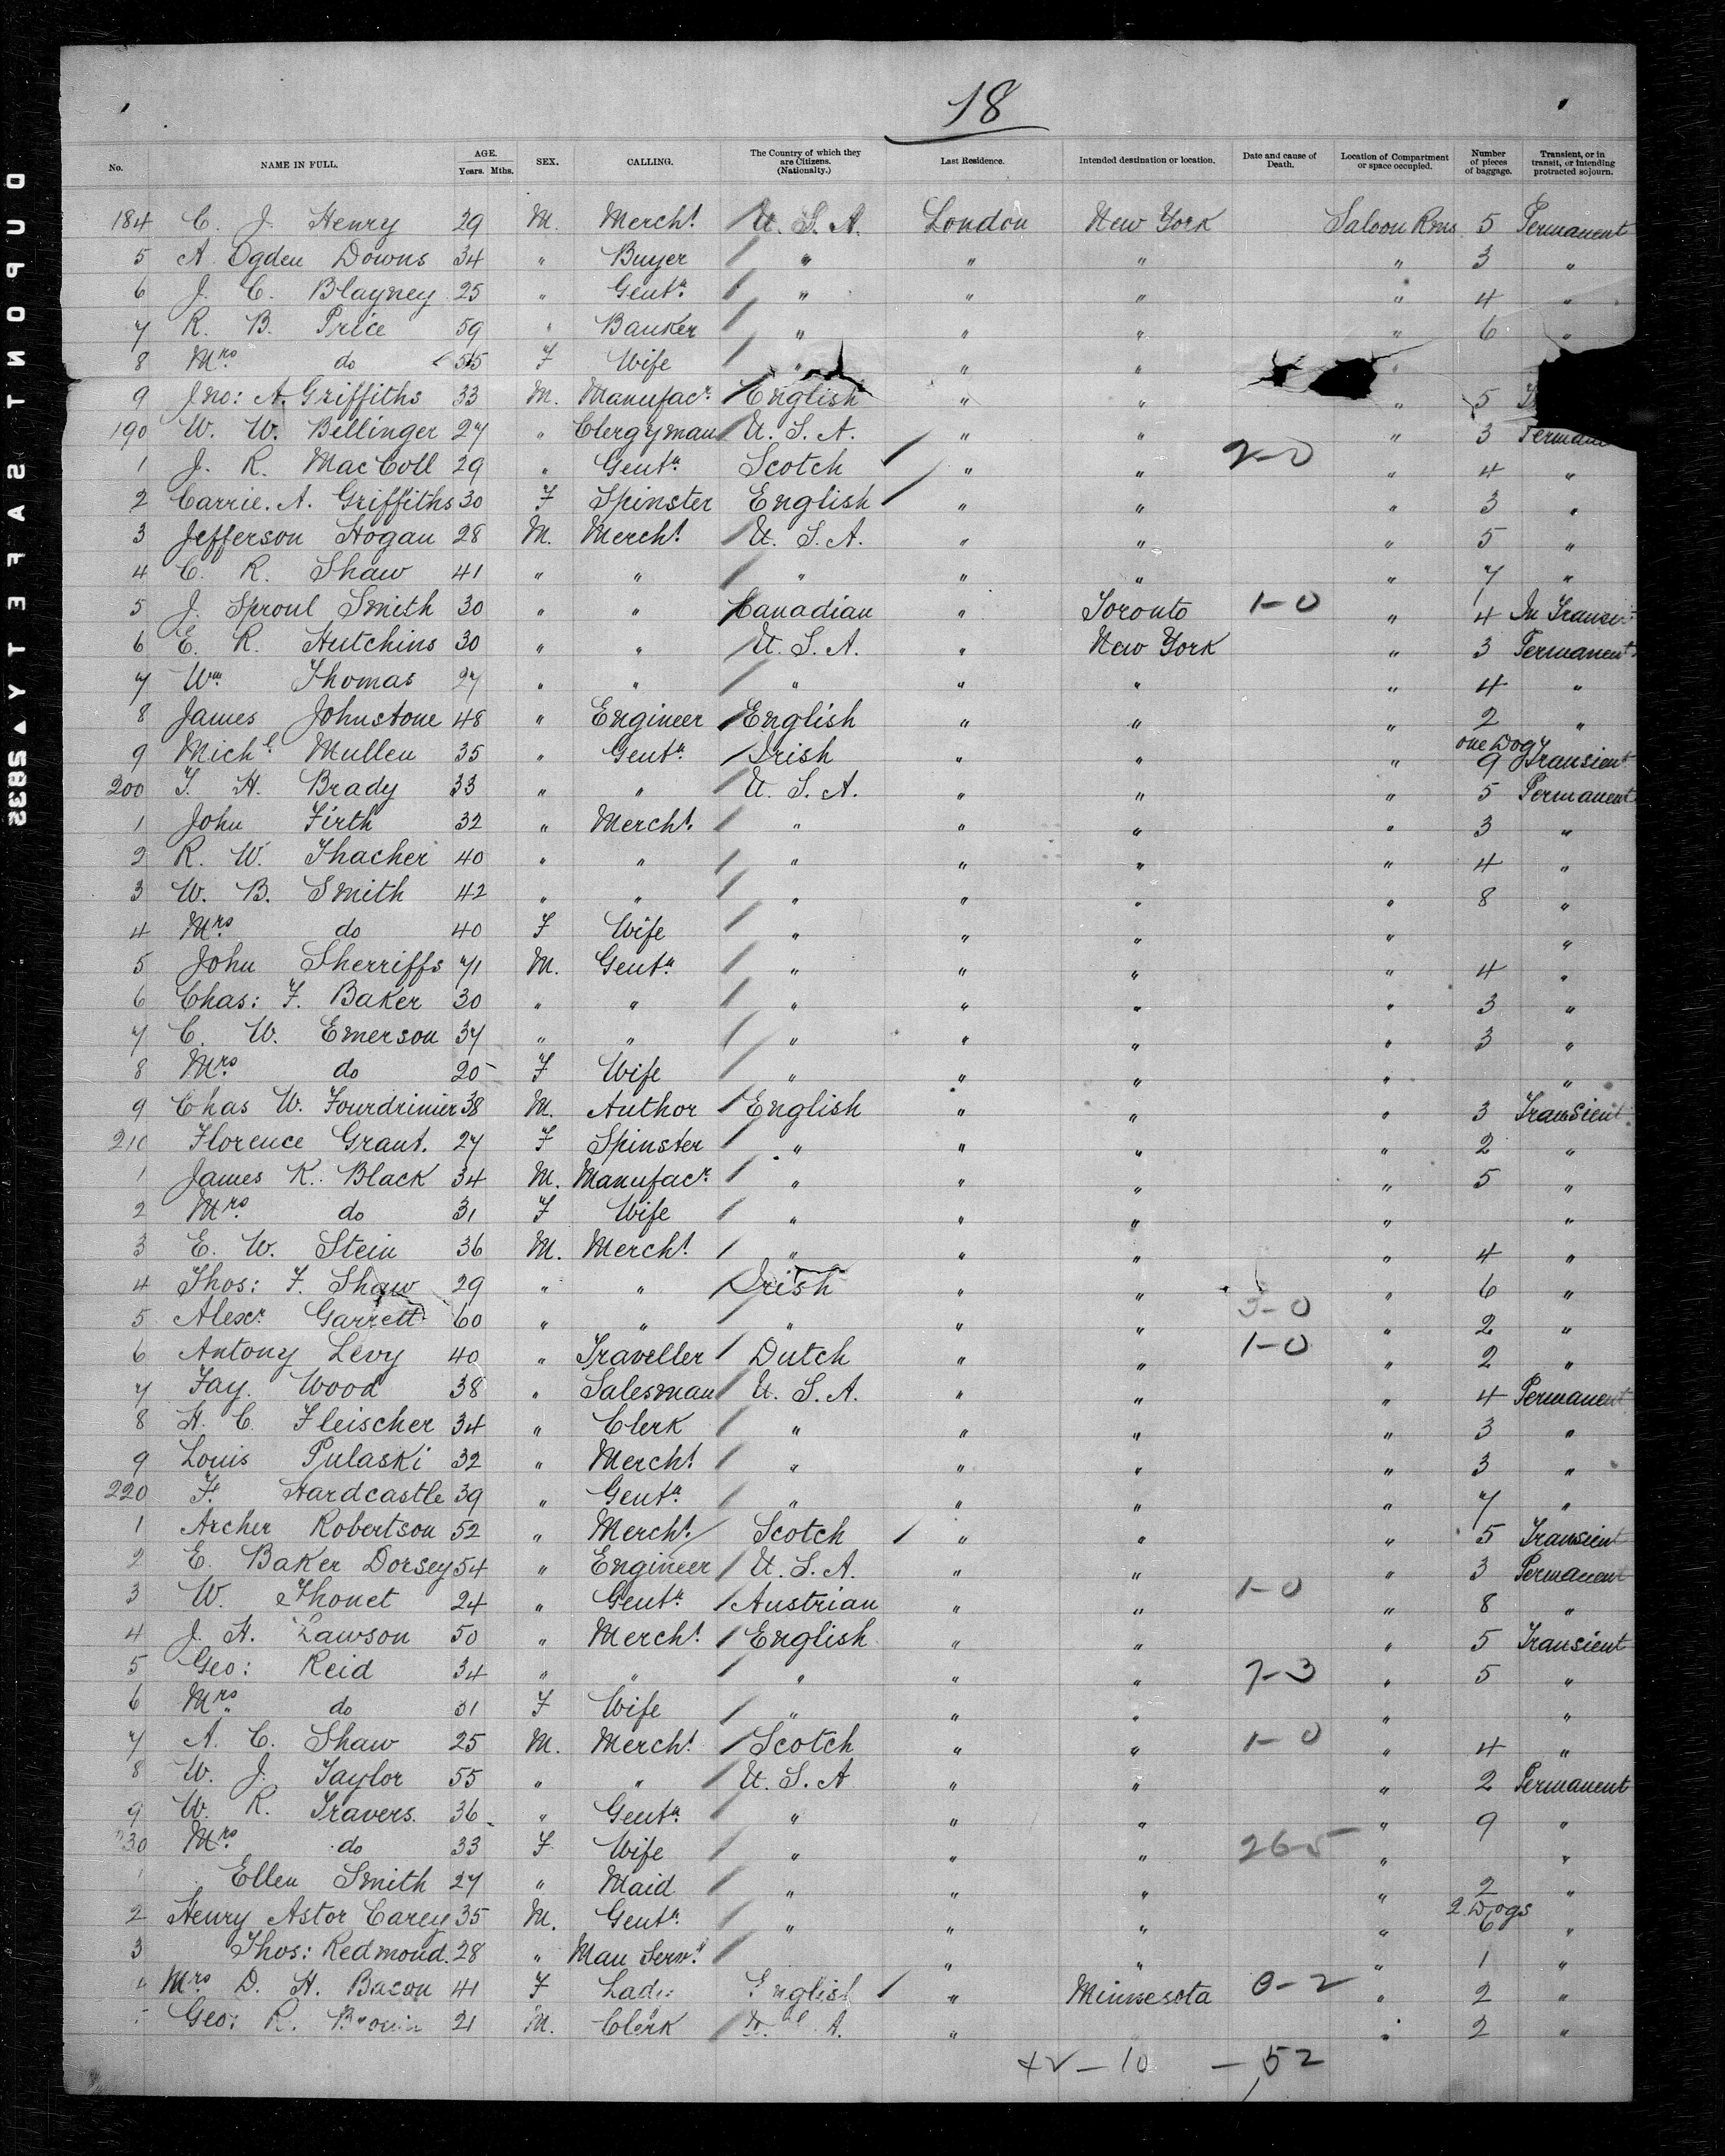 18
No. NAME IN FULL. AGE. Years. Mths. SEX. CALLING. The Country of which they are Citizens. (Nationalty.) Last Residence. Intended destination or location. Date and cause of Death. Location of Compartment or space occupied. Number of pieces of baggage. Transient, or in transit, or intending protracted sojourn.
184 C. J. Henry 29 M. Mercht. U.S.A. London New York Saloon Rms. 5 Permanent
5 A Ogden Downs 34 " Buyer " " " " 3 "
6 J. C. Blayney 25 " Gentn. " " " " 4 "
7 R. B. Price 59 " Banker " " " " 6 "
8 Mrs. do 55 F Wife " " " "
9 Jno: A. Griffiths 33 M. Manufacr. English " " " 5
190 W. W. Bellinger 27 " Clergyman U.S.A. " " " 3
1 J. R. MacColl 29 " Gentn. Scotch " " 2-0 " 4 "
2 Carrie. A. Griffiths 30 F Spinster English " " " 3 "
3 Jefferson Hogan 28 M. Mercht. U.S.A. " " " 5 "
4 C. R. Shaw 41 " " " " " " 7 "
5 J. Sproul Smith 30 " " Canadian " Toronto 1-0 " 4 In Transit
6 E. R. Hutchins 30 " " U.S.A. " New York " 3 Permanent
7 Wm. Thomas 27 " " " " " " 4 "
8 James Johnstone 48 " Engineer English " " " 2 "
one Dog
9 Michl. Mullen 35 " Gentn. Irish " " " 9 Transient
200 T. H. Brady 33 " " U.S.A. " " " 5 Permanent
1 John Firth 32 " Mercht. " " " " 3 "
2 R. W. Thacher 40 " " " " " " 4 "
3 W. B. Smith 42 " " " " " " 8 "
4 Mrs. do 40 F Wife " " " " "
5 John Sherriffs 71 M. Gentn. " " " " 4 "
6 Chas: F. Baker 30 " " " " " " 3 "
7 C. W. Emerson 37 " " " " " " 3 "
8 Mrs. do 20 F Wife " " " " "
9 Chas W. Fourdrinier 38 M. Author English " " " 3 Transient
210 Florence Grant. 27 F Spinster " " " " 2 "
1 James K. Black 34 M. Manufacr. " " " " 5 "
2 Mrs. do 31 F Wife " " " " "
3 E. W. Stein 36 M. Mercht. " " " " 4 "
4 Thos: F. Shaw 29 " " Irish " " " 6 "
5 Alexr. Garrett 60 " " " " " 3-0 " 2 "
6 Antony Levy 40 " Traveller Dutch " " 1-0 " 2 "
7 Fay. Wood 38 " Salesman U.S.A. " " " 4 Permanent
8 H. C. Fleischer 34 " Clerk " " " " 3 "
9 Louis Pulaski 32 " Mercht. " " " " 3 "
220 F. Hardcastle 39 " Gentn. " " " " 7 "
1 Archer Robertson 52 " Mercht. Scotch " " " 5 Transient
2 E. Baker Dorsey 54 " Engineer U.S.A. " " " 3 Permanent
3 W. Thonet 24 " Gentn. Austrian " " 1-0 " 8 "
4 J. H. Lawson 50 " Mercht. English " " " 5 Transient
5 Geo: Reid 34 " " " " " 7-3 " 5 "
6 Mrs. do 31 F Wife " " " " "
7 A. C. Shaw 25 M. Mercht. Scotch " " 1-0 " 4 "
8 W. J. Taylor 55 " " U.S.A " " " 2 Permanent
9 W. R. Travers. 36 " Gentn. " " " " 9 "
230 Mrs. do 33 F Wife " " " 26-5 " "
1 Ellen Smith 27 " Maid " " " " 2 "
2 Dogs
2 Henry Astor Carey 35 M. Gentn. " " " " 6 "
3 Thos: Redmond. 28 " Man Servt. " " " 1 "
4 Mrs. D. H. Bacon 41 F English " Minnesota 0-2 " 2 "
Geo: R. 21 M. Clerk A. " " 2 "
10 - 52
DUPONT SAFETY